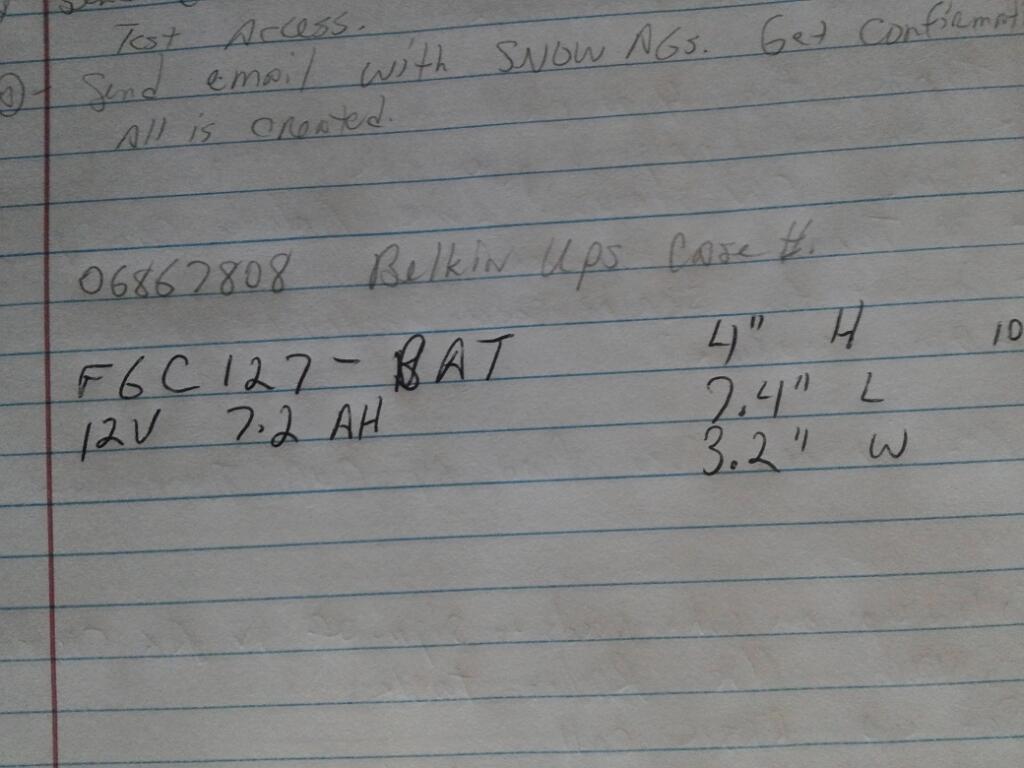 Test Access.
Send email with SNOW AGs. Get Confirmat
All is created.
06867808 Belkin Ups Case #.
F6C127-BAT 4" H 10
12V 7.2 AH 7.4" L
3.2" W